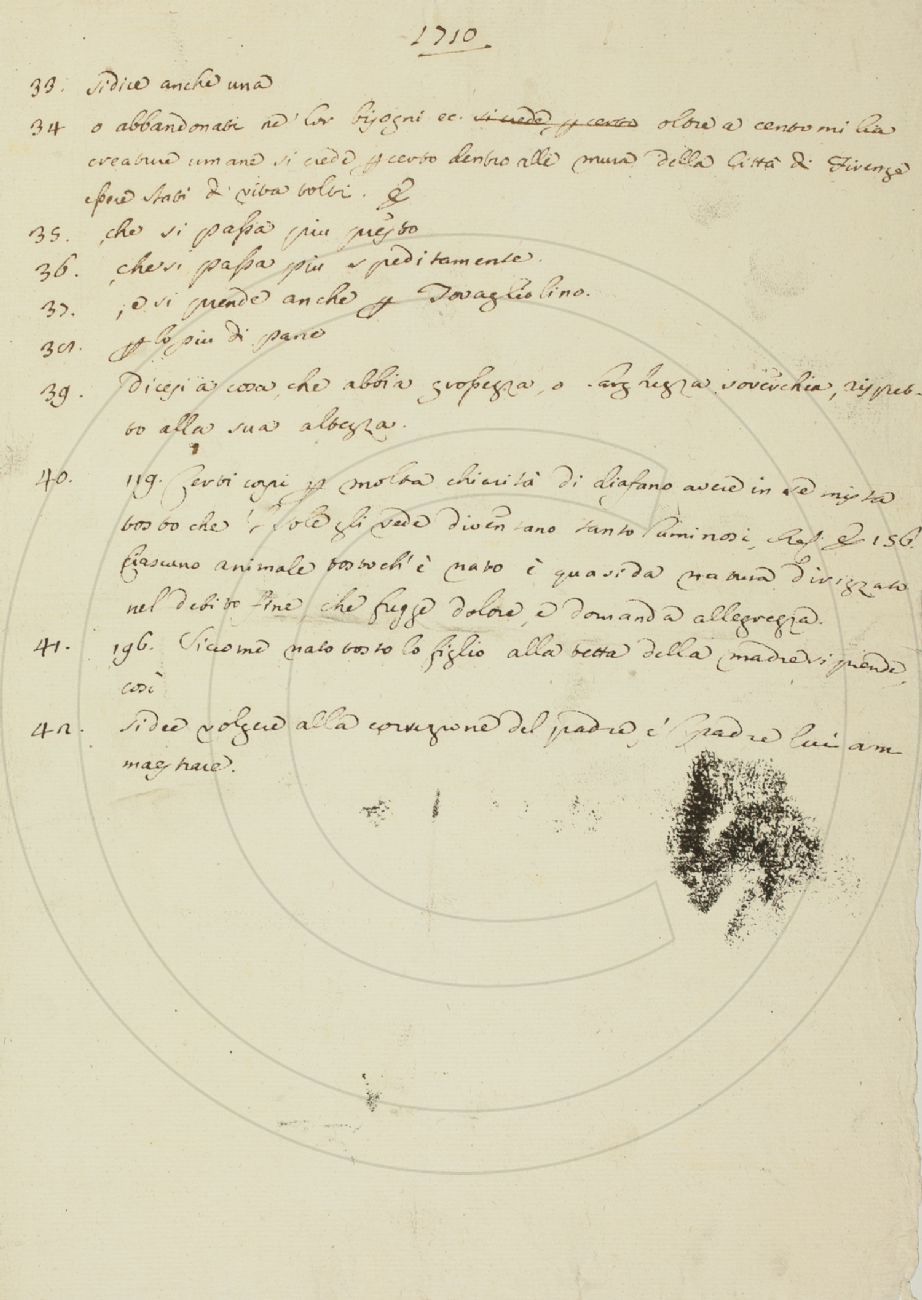 1710
33. Si dice anche una
34 o abbandonati ne' lor bisogni ec. si crede, p certo oltre a cento milia
creature umane si crede p certo dentro alle mura della Città di Firenze
essere stati di vita tolti. &
35. , che si passa piu presto
36. , che si passa piu speditamente.
37. , e si prende anche p Tovagliolino.
38. p lo piu di pane
39. Dicesi a cosa, che abbia grossezza, o larghezza soverchia, rispet-
to alla sua altezza.
40. 119. Certi corpi p molta chiarità di diafano avere in se mista
tosto che 'l sole gli vede diventano tanto luminosi, & 156.
Ciascuno animale tosto ch' è nato è quasi da natura dirizzato
nel debito fine che fugge dolore, e domanda allegrezza.
41. 196. Sicome nato tosto lo figlio alla tetta della madre si prende,
così
42. si dee volgere alla correzione del padre, e 'l padre lui am-
maestrare.